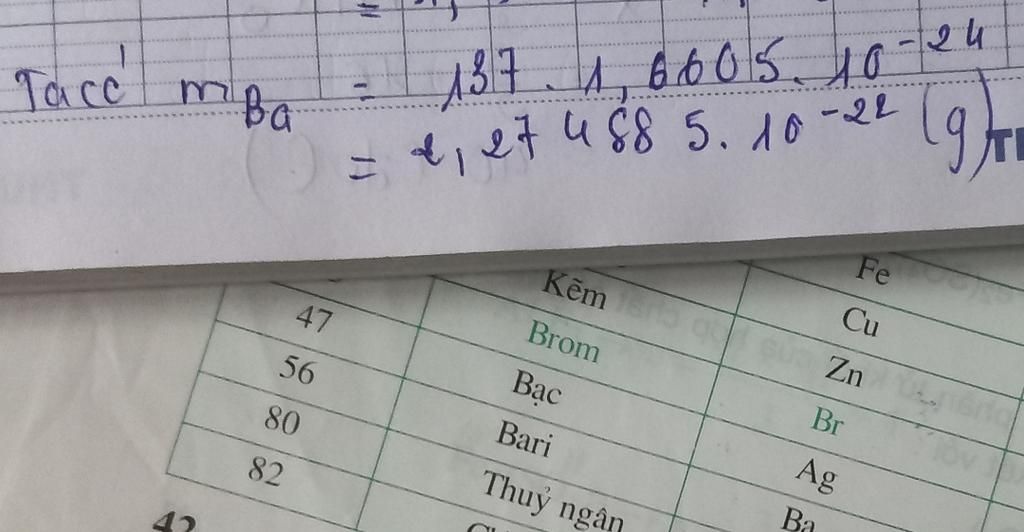 Ta có m Ba = 137 . 1,6605 . 10⁻²⁴
= 2,274885 . 10⁻²² (g)
Kẽm Fe
47 Brom Cu
56 Bạc Zn
80 Bari Br
82 Thuỷ ngân Ag
Ba